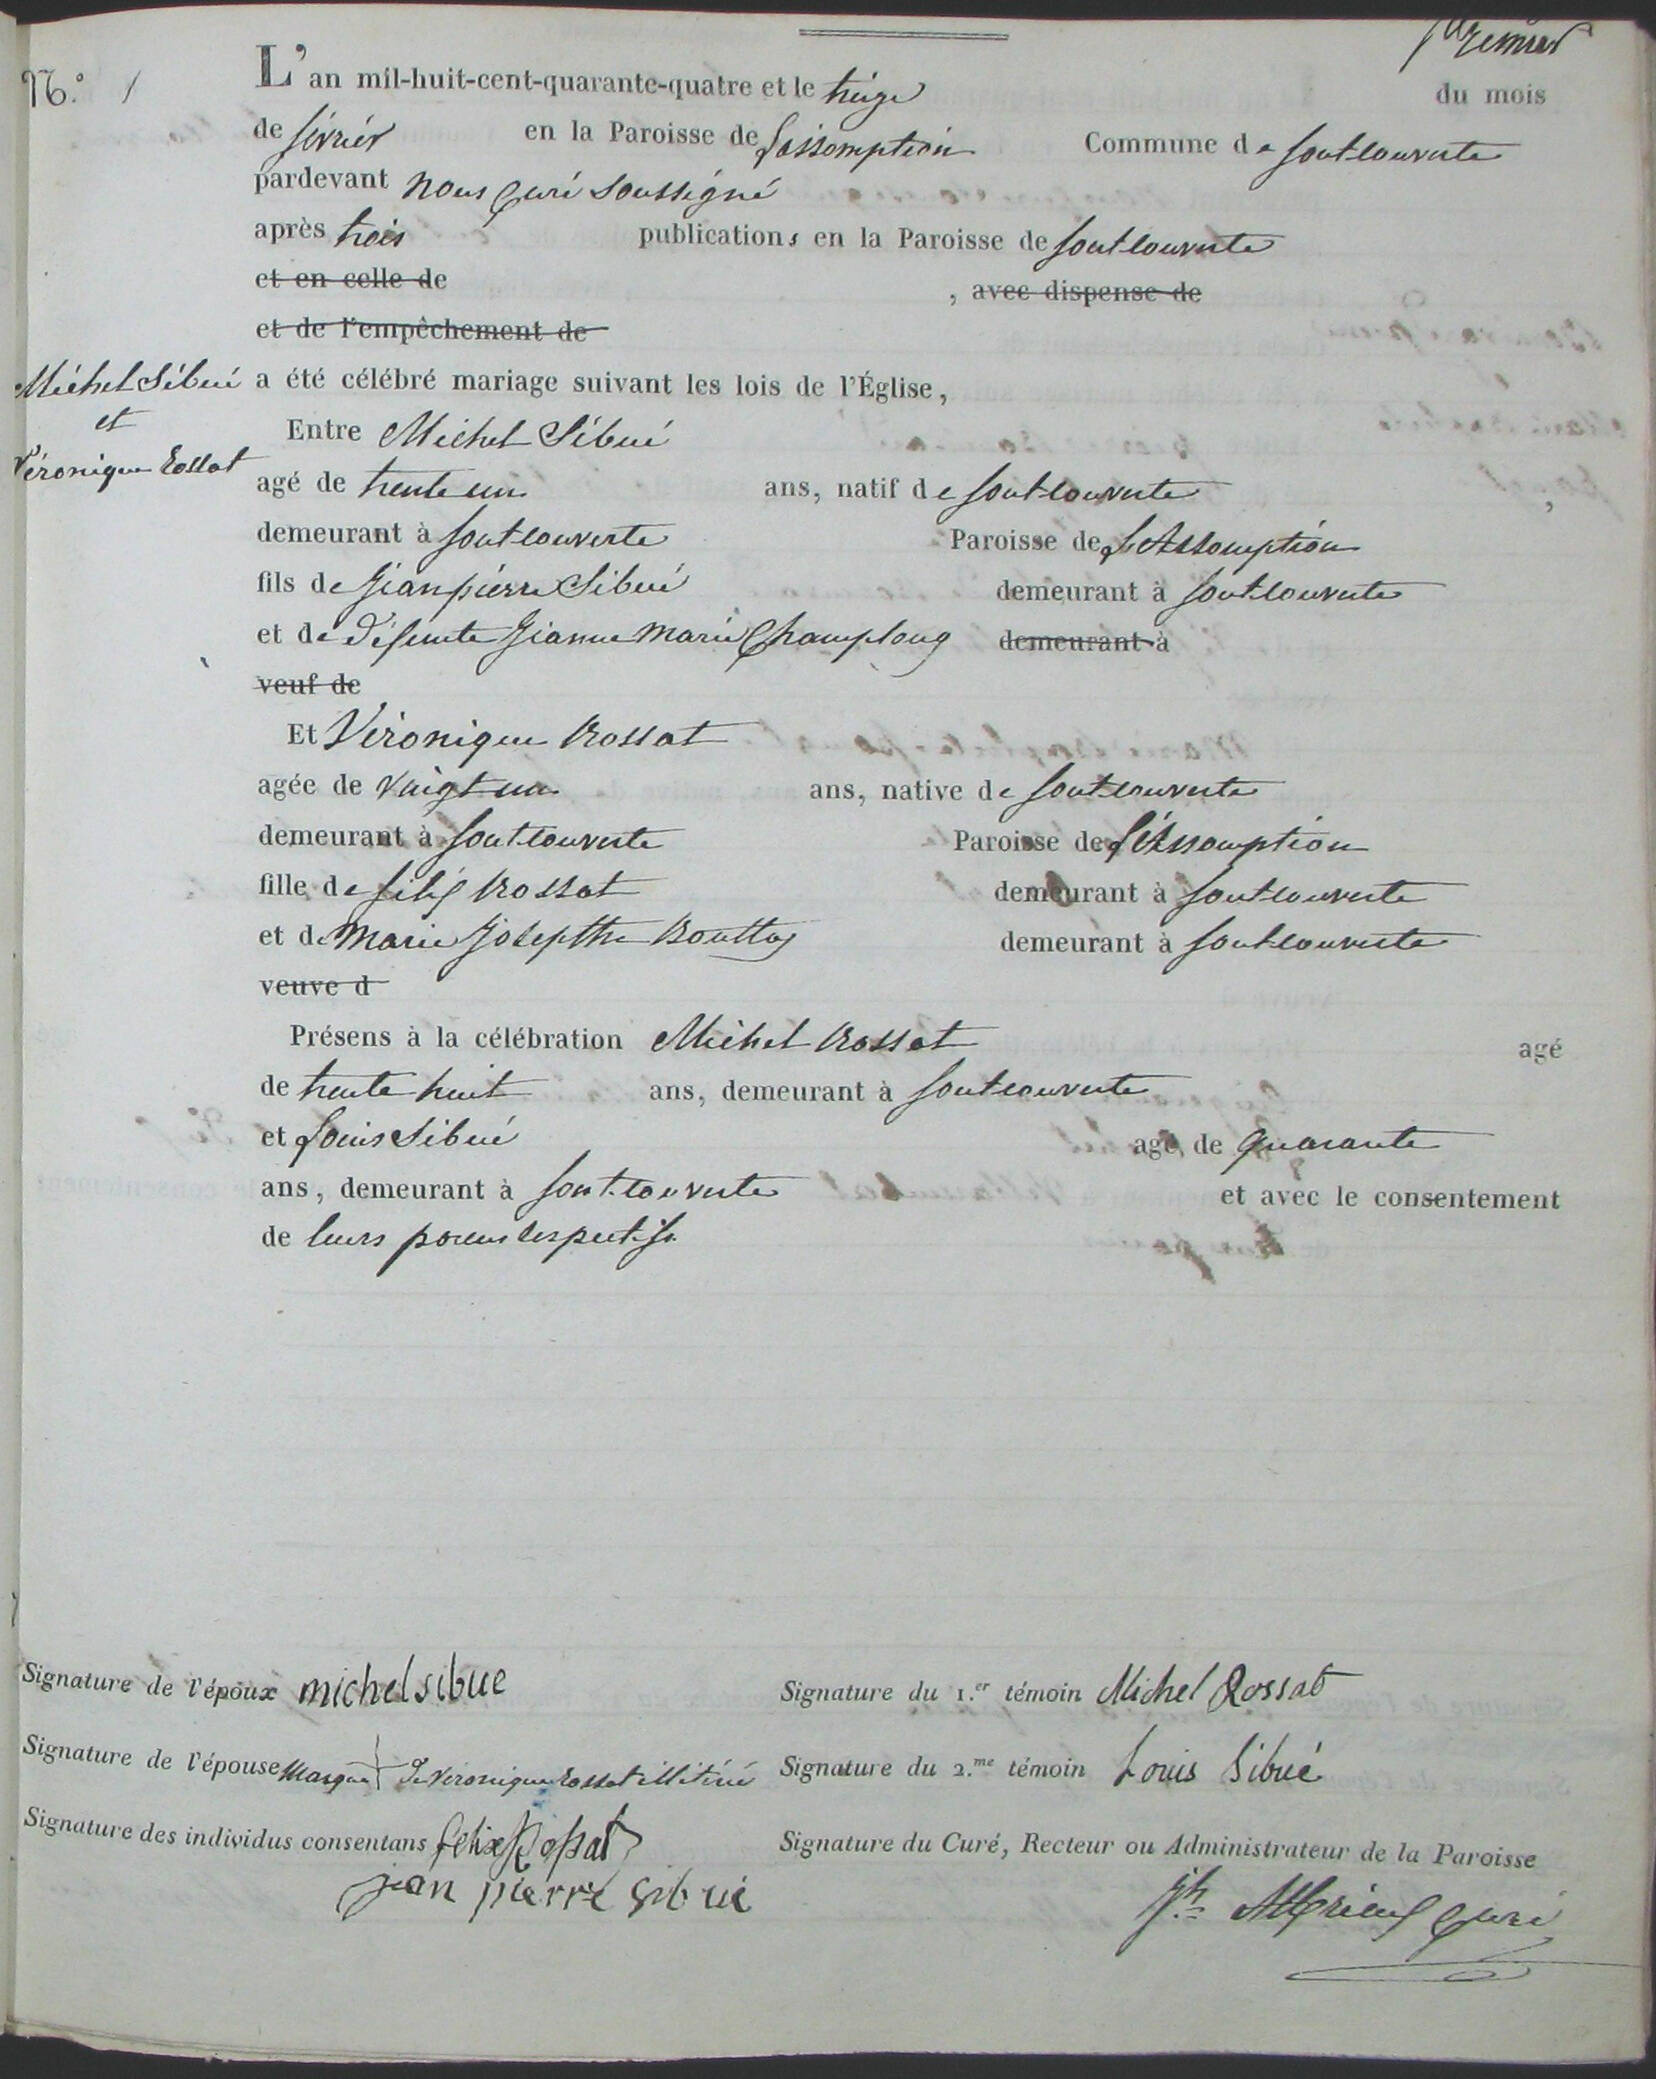 premier
N.° 1
L'an mil-huit-cent-quarante-quatre et le treize du mois
de fevrier en la Paroisse de L'assomption Commune de fontcouverte
pardevant nous Curé soussigné
après trois publications en la Paroisse de fontcouverte
et en celle de , avec dispense de
et de l'empêchement de
Michel Sibué
et
Véronique Rossat
a été célébré mariage suivant les lois de l'Église,
Entre Michel Sibué
agé de trente un ans, natif de fontcouverte
demeurant à fontcouverte Paroisse de L'Assomption
fils de Jean pierre Sibué demeurant à fontcouverte
et de Défunte Jeanne Marie Champlong demeurant à
veuf de
Et Véronique Rossat
agée de vingt un ans, native de fontcouverte
demeurant à fontcouverte Paroisse de L'Assomption
fille de félix Rossat demeurant à fontcouverte
et de Marie Josepthe Bouttaz demeurant à fontcouverte
veuve d
Présens à la célébration Michel Rossat agé
de trente huit ans, demeurant à fontcouverte
et Louis Sibué agé de quarante
ans, demeurant à fontcouverte et avec le consentement
de leurs parens respectifs
Signature de l'époux michel sibue
Signature du 1.er témoin Michel Rossat
Signature de l'épouse Marque + De Véronique Rossat illitérée
Signature du 2.me témoin Louis Sibué
Signature des individus consentans felix Rossat
jean pierre sibué
Signature du Curé, Recteur ou Administrateur de la Paroisse
Jh. Curé